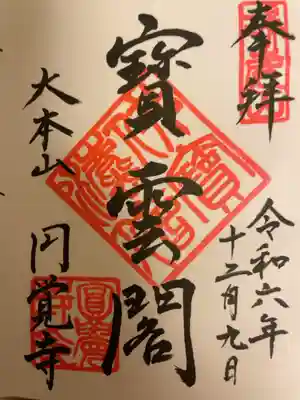 奉拝
令和六年
十二月九日
寶雲閣
大本山
円覚寺